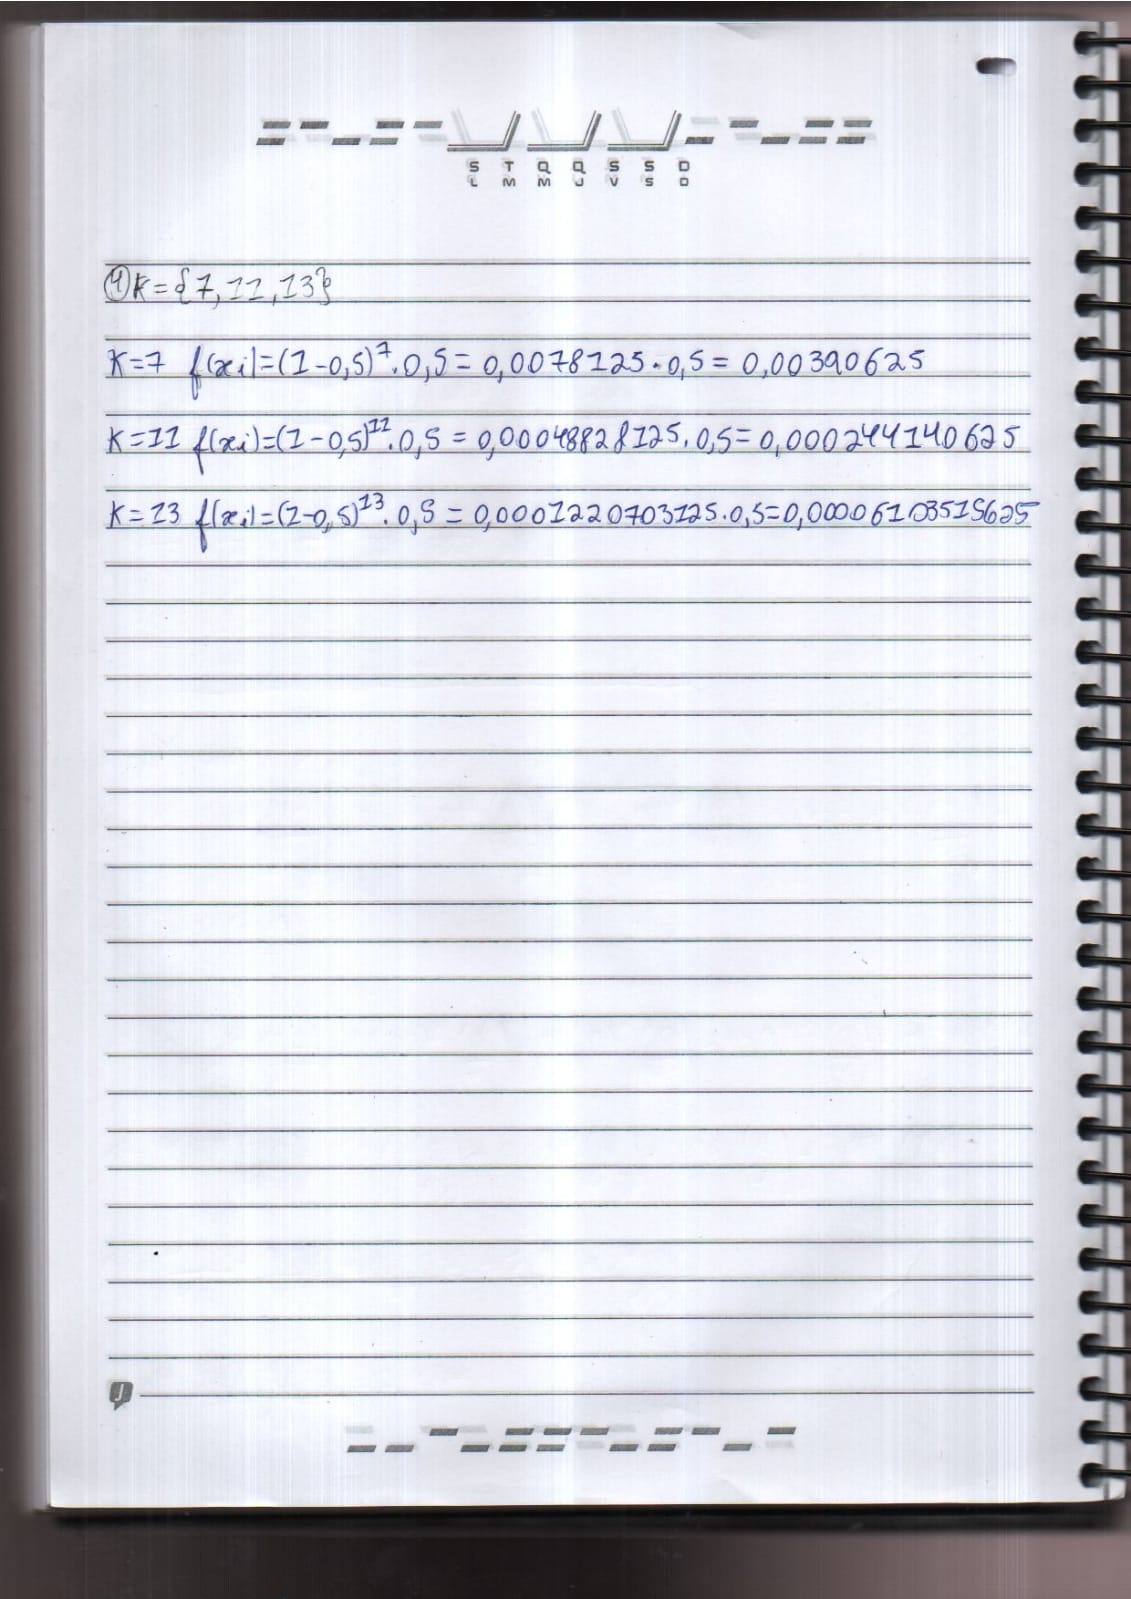 S T Q Q S S D
L M M J V S D
④ K = {7, 11, 13}
K=7 f(xi)=(1-0,5)⁷.0,5 = 0,0078125.0,5 = 0,00390625
K=11 f(xi)=(1-0,5)¹¹.0,5 = 0,00048828125.0,5 = 0,000244140625
K=13 f(xi)=(1-0,5)¹³.0,5 = 0,0001220703125.0,5=0,00006103515625
J